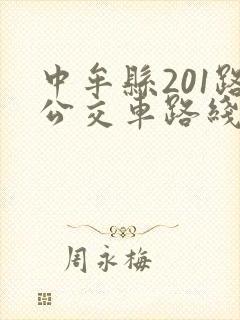 中牟縣201路
公交車路綫
周永梅